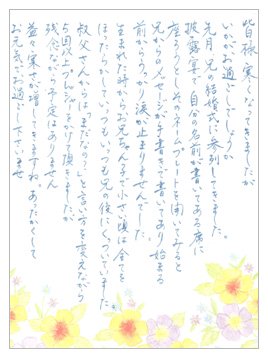 皆様、寒くなってきましたが
いかがお過ごしでしょうか
先月、兄の結婚式に参列してきました。
披露宴で、自分の名前が書いてある席に
座ろうとしそのネームプレートを開いてみると
兄からのメッセージが手書きで書いてあり始まる
前からうっかり涙が止まりませんでした。
生まれた時からお兄ちゃん子で小さい頃は全てを
はんぶんこしていつもいつも兄の後にくっついていました。
叔父さんからは「まだなの」と言い方を変えながら
5回以上プレッシャーをかけて頂きましたが
残念ながら予定はありません
益々寒さが増しますね。あったかくして
お元気にお過し下さいませ